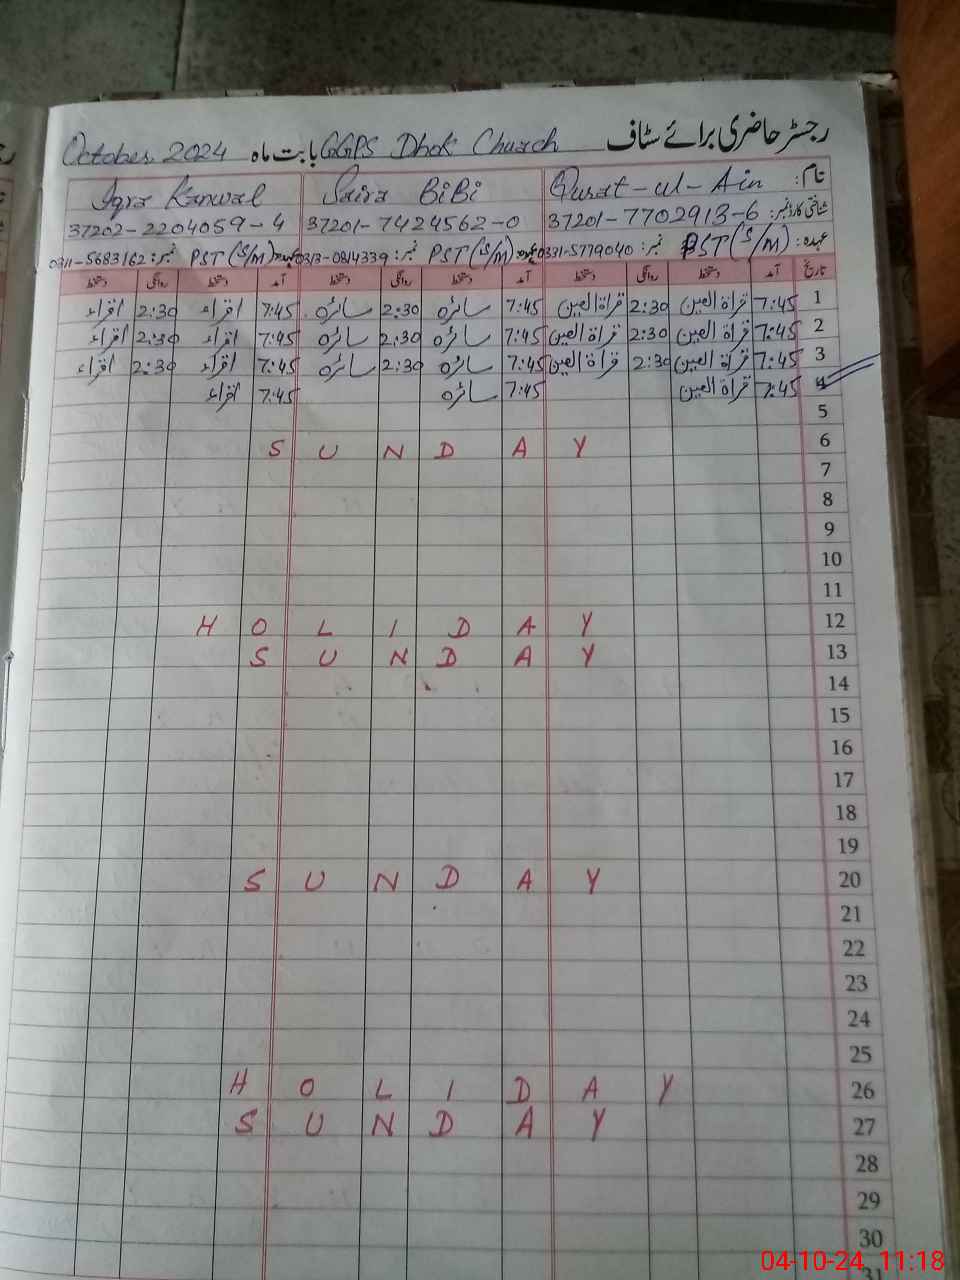 رجسٹر حاضری برائے سٹاف GGPS Dhok Church بابت ماہ October 2024
نام: Qurat-ul-Ain Saira BiBi Iqra Kanwal
شناختی کارڈ نمبر: 37201-7702913-6 37201-7424562-0 37202-2204059-4
عہدہ: PST(S/M) نمبر: 0331-5779040 عہدہ PST(S/M) نمبر: 0313-0814339 عہدہ PST(S/M) نمبر: 0311-5683162
تاریخ آمد دستخط روانگی دستخط آمد دستخط روانگی دستخط آمد دستخط روانگی دستخط
1 7:45 قراۃ العین 2:30 قراۃ العین 7:45 سائرہ 2:30 سائرہ 7:45 اقراء 2:30 اقراء
2 7:45 قراۃ العین 2:30 قراۃ العین 7:45 سائرہ 2:30 سائرہ 7:45 اقراء 2:30 اقراء
3 7:45 قراۃ العین 2:30 قراۃ العین 7:45 سائرہ 2:30 سائرہ 7:45 اقراء 2:30 اقراء
4 7:45 قراۃ العین 7:45 سائرہ 7:45 اقراء
5
SUNDAY 6
7
8
9
10
11
HOLIDAY 12
SUNDAY 13
14
15
16
17
18
19
SUNDAY 20
21
22
23
24
25
HOLIDAY 26
SUNDAY 27
28
29
30
31
04-10-24 11:18